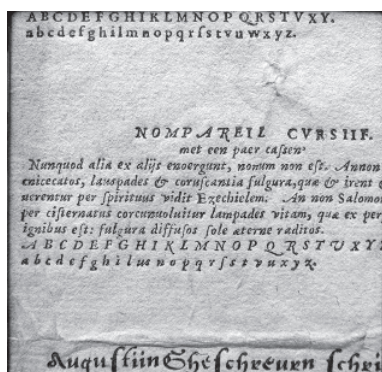 A B C D E F G H I K L M N O P Q R S T V X Y.
a b c d e f g h i l m n o p q r ſ s t v u w x y z.
NOMPAREIL CVRSIIF.
met een paer caſſen
Nunquod alia ex alijs enoergunt, nonum non eſt. Annon
enicecatos, lauspades & coruſcantia fulgura, quæ & irent
uerentur per ſpirituus vidit Ezechielem. An non Salomo
per ciſternatus corcunuoluitur lampades vitam, quæ ex per
ignibus eſt: fulgura diffuſos ſole æterne raditos.
A B C D E F G H I K L M N O P Q R S T V X Y
a b c d e f g h i l u s n o p q r ſ s t v u x y z.
Auguſtiin Gheſcheurn ſchri